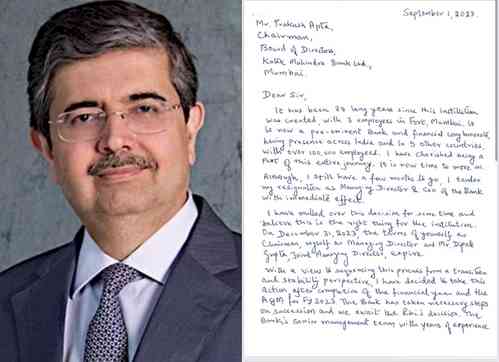 September 1, 2023.
Mr. Prakash Apte,
Chairman,
Board of Directors,
Kotak Mahindra Bank Ltd.,
Mumbai.
Dear Sir,
It has been 38 long years since this institution
was created with 3 employees in Fort, Mumbai. It
is now a pre-eminent Bank and financial conglomerate,
having presence across India and in 5 other countries
with over 100,000 employees. I have cherished being a
part of this entire journey. It is now time to move on.
Although, I still have a few months to go, I tender
my resignation as Managing Director & CEO of the Bank
with immediate effect.
I have mulled over this decision for some time and
believe this is the right thing for the institution.
On December 31, 2023 the terms of yourself as
Chairman, myself as Managing Director and Mr. Dipak
Gupta, Joint Managing Director, expire.
With a view to sequencing this process from a transition
and stability perspective, I have decided to take this
action after completion of the financial year and the
AGM for FY2023. The Bank has taken necessary steps
on succession and we await the RBI's decision. The
Bank's senior management team with years of experience